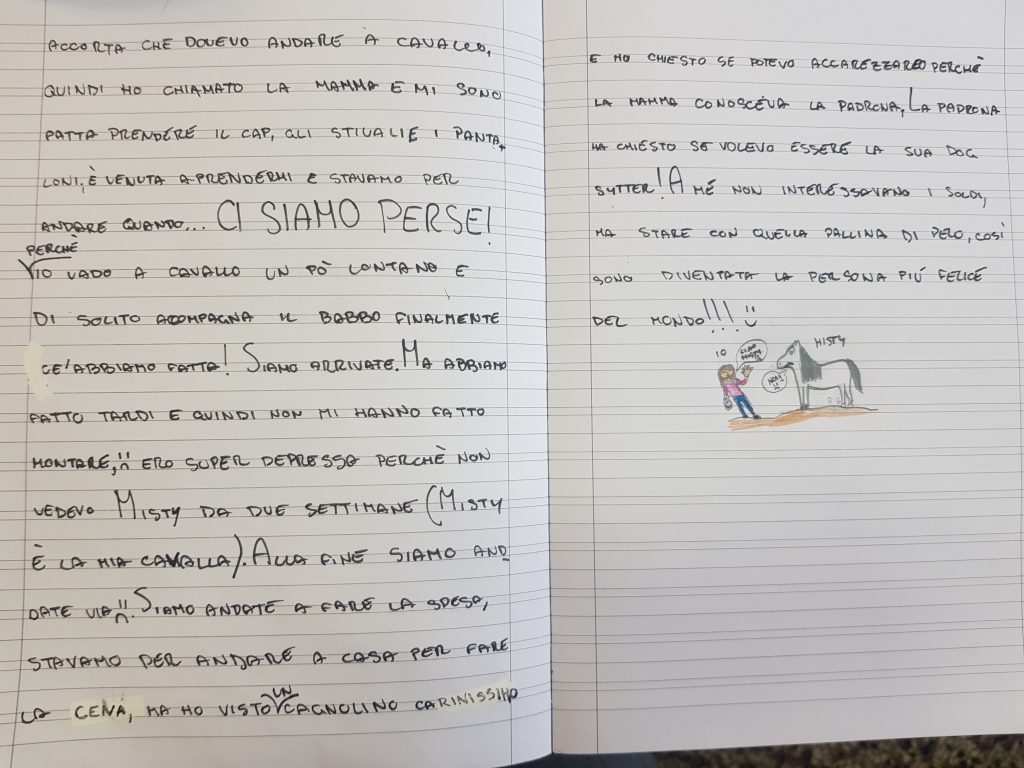 ACCORTA CHE DOVEVO ANDARE À CAVALLO,
QUINDI HO CHIAMATO LA MAMMA E MI SONO
FATTA PRENDERE IL CAP, GLI STIVALI E I PANTA
LONI, È VENUTA A PRENDERMI E STAVAMO PER
ANDARE QUANDO... CI SIAMO PERSE!
PERCHÈ
IO VADO A CAVALLO UN PÒ LONTANO E
DI SOLITO ACOMPAGNA IL BABBO FINALMENTE
CE' ABBIAMO FATTA! SIAMO ARRIVATE. MA ABBIAMO
FATTO TARDI E QUINDI NON MI HANNO FATTO
MONTARE, ERO SUPER DEPRESSA PERCHÈ NON
VEDEVO MISTY DA DUE SETTIMANE (MISTY
È LA MIA CAVALLA). ALLA FINE SIAMO AND
DATE VIA. SIAMO ANDATE A FARE LA SPESA,
STAVAMO PER ANDARE A CASA PER FARE
LA CENA, MA HO VISTO UN CAGNOLINO CARINISSIMO
E HO CHIESTO SE POTEVO ACCAREZZARLO PERCHÈ
LA MAMMA CONOSCEVA LA PADRONA, LA PADRONA
HA CHIESTO SE VOLEVO ESSERE LA SUA DOG
SYTTER! A MÉ NON INTERESSAVANO I SOLDI,
MA STARE CON QUELLA PALLINA DI PELO, COSÌ
SONO DIVENTATA LA PERSONA PIÚ FELICE
DEL MONDO!!!
IO
CIAO MISTY
MISTY